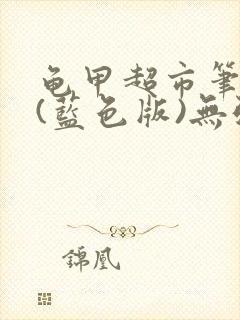 龟甲超市筆
(藍色版)無
錦凰